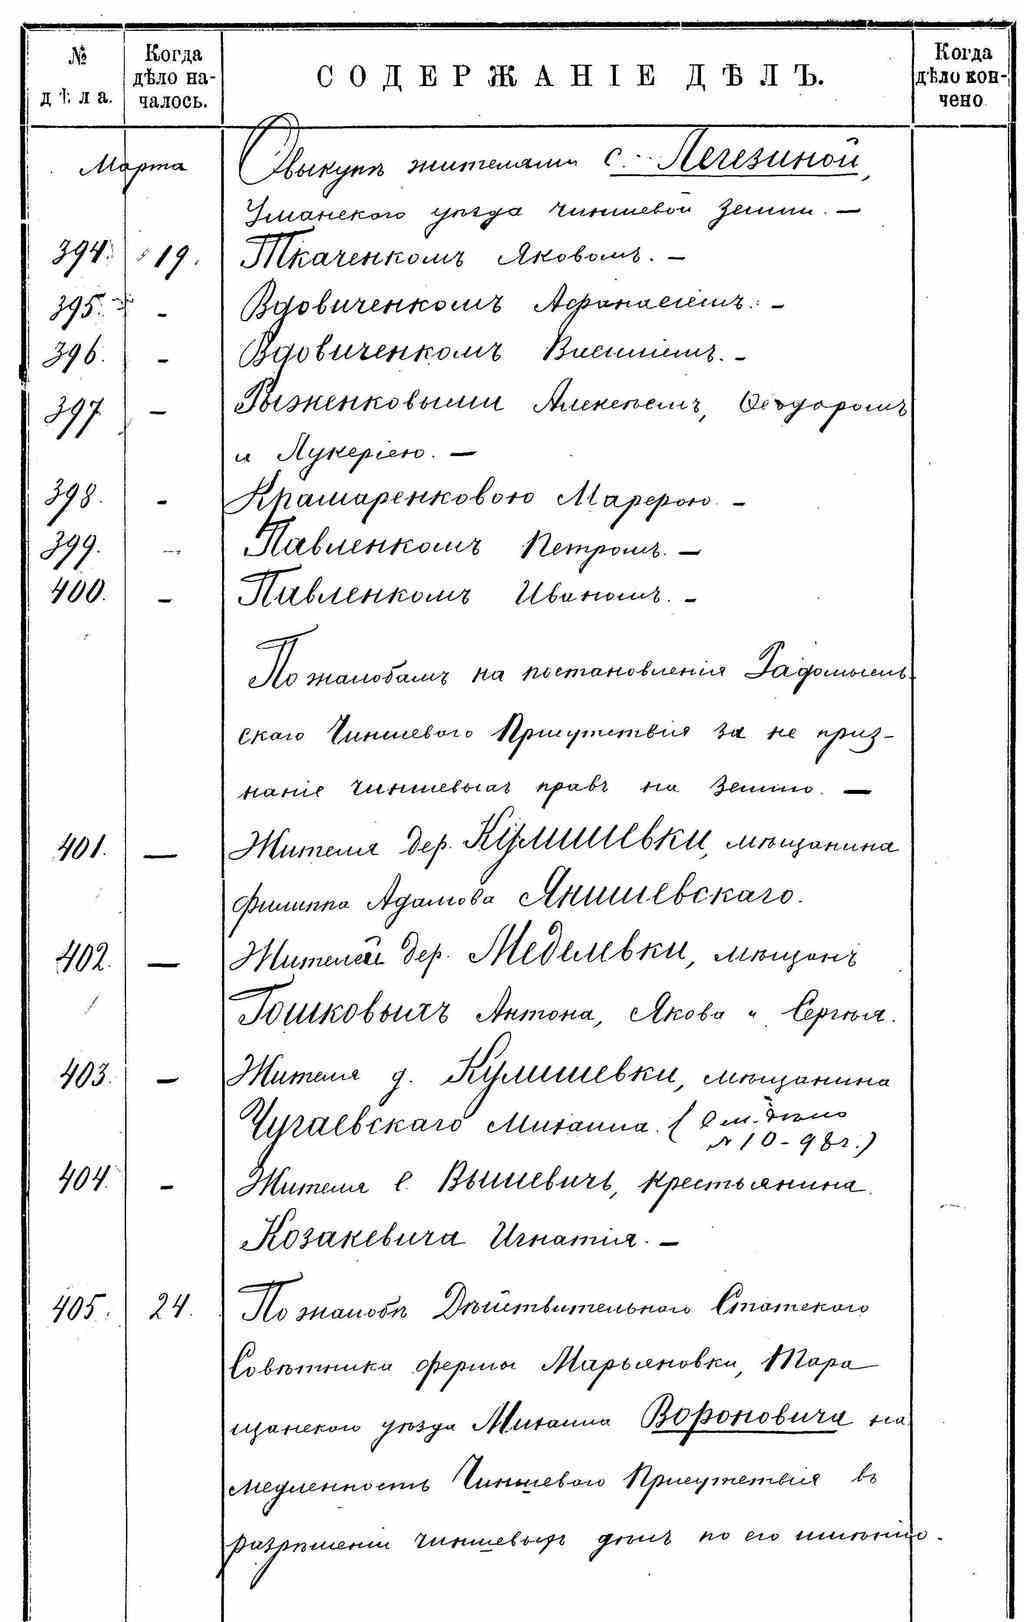 № дѣла.
Когда дѣло началось.
СОДЕРЖАНІЕ ДѢЛЪ.
Когда дѣло кончено
Марта
О выкупѣ жителями с. Легезиной,
Уманского уѣзда чиншевой земли. —
394. 19. Ткаченкомъ Яковомъ. —
395. - Вдовиченкомъ Афанасіемъ. -
396. - Вдовиченкомъ Василіемъ. -
397 — Рыженковыми Алексѣемъ, Ѳеодоромъ
и Лукеріею. —
398. - Крамаренковою Марфою. -
399. - Павленкомъ Петромъ. —
400. - Павленкомъ Иваномъ. -
По жалобамъ на постановленія Радомысль-
скаго Чиншеваго Присутствія за не приз-
наніе чиншевыхъ правъ на землю. —
401. — Жителя дер. Кулишевки, мѣщанина
Филиппа Адамова Янишевскаго.
402. — Жителей дер. Меделевки, мѣщанъ
Гошковыхъ Антона, Якова и Сергѣя.
403. — Жителя д. Кулишевки, мѣщанина
Чугаевскаго Михаила. (См. дѣло
№ 10 - 98 г.)
404. - Жителя с. Вышевичъ, крестьянина
Козакевича Игнатія. —
405. 24. По жалобѣ Дѣйствительнаго Статскаго
Совѣтника фермы Марьяновки, Тара
щанскаго уѣзда Михаила Вороновича на
медленность Чиншеваго Присутствія въ
разрѣшеніи чиншевыхъ дѣлъ по его имѣнію.